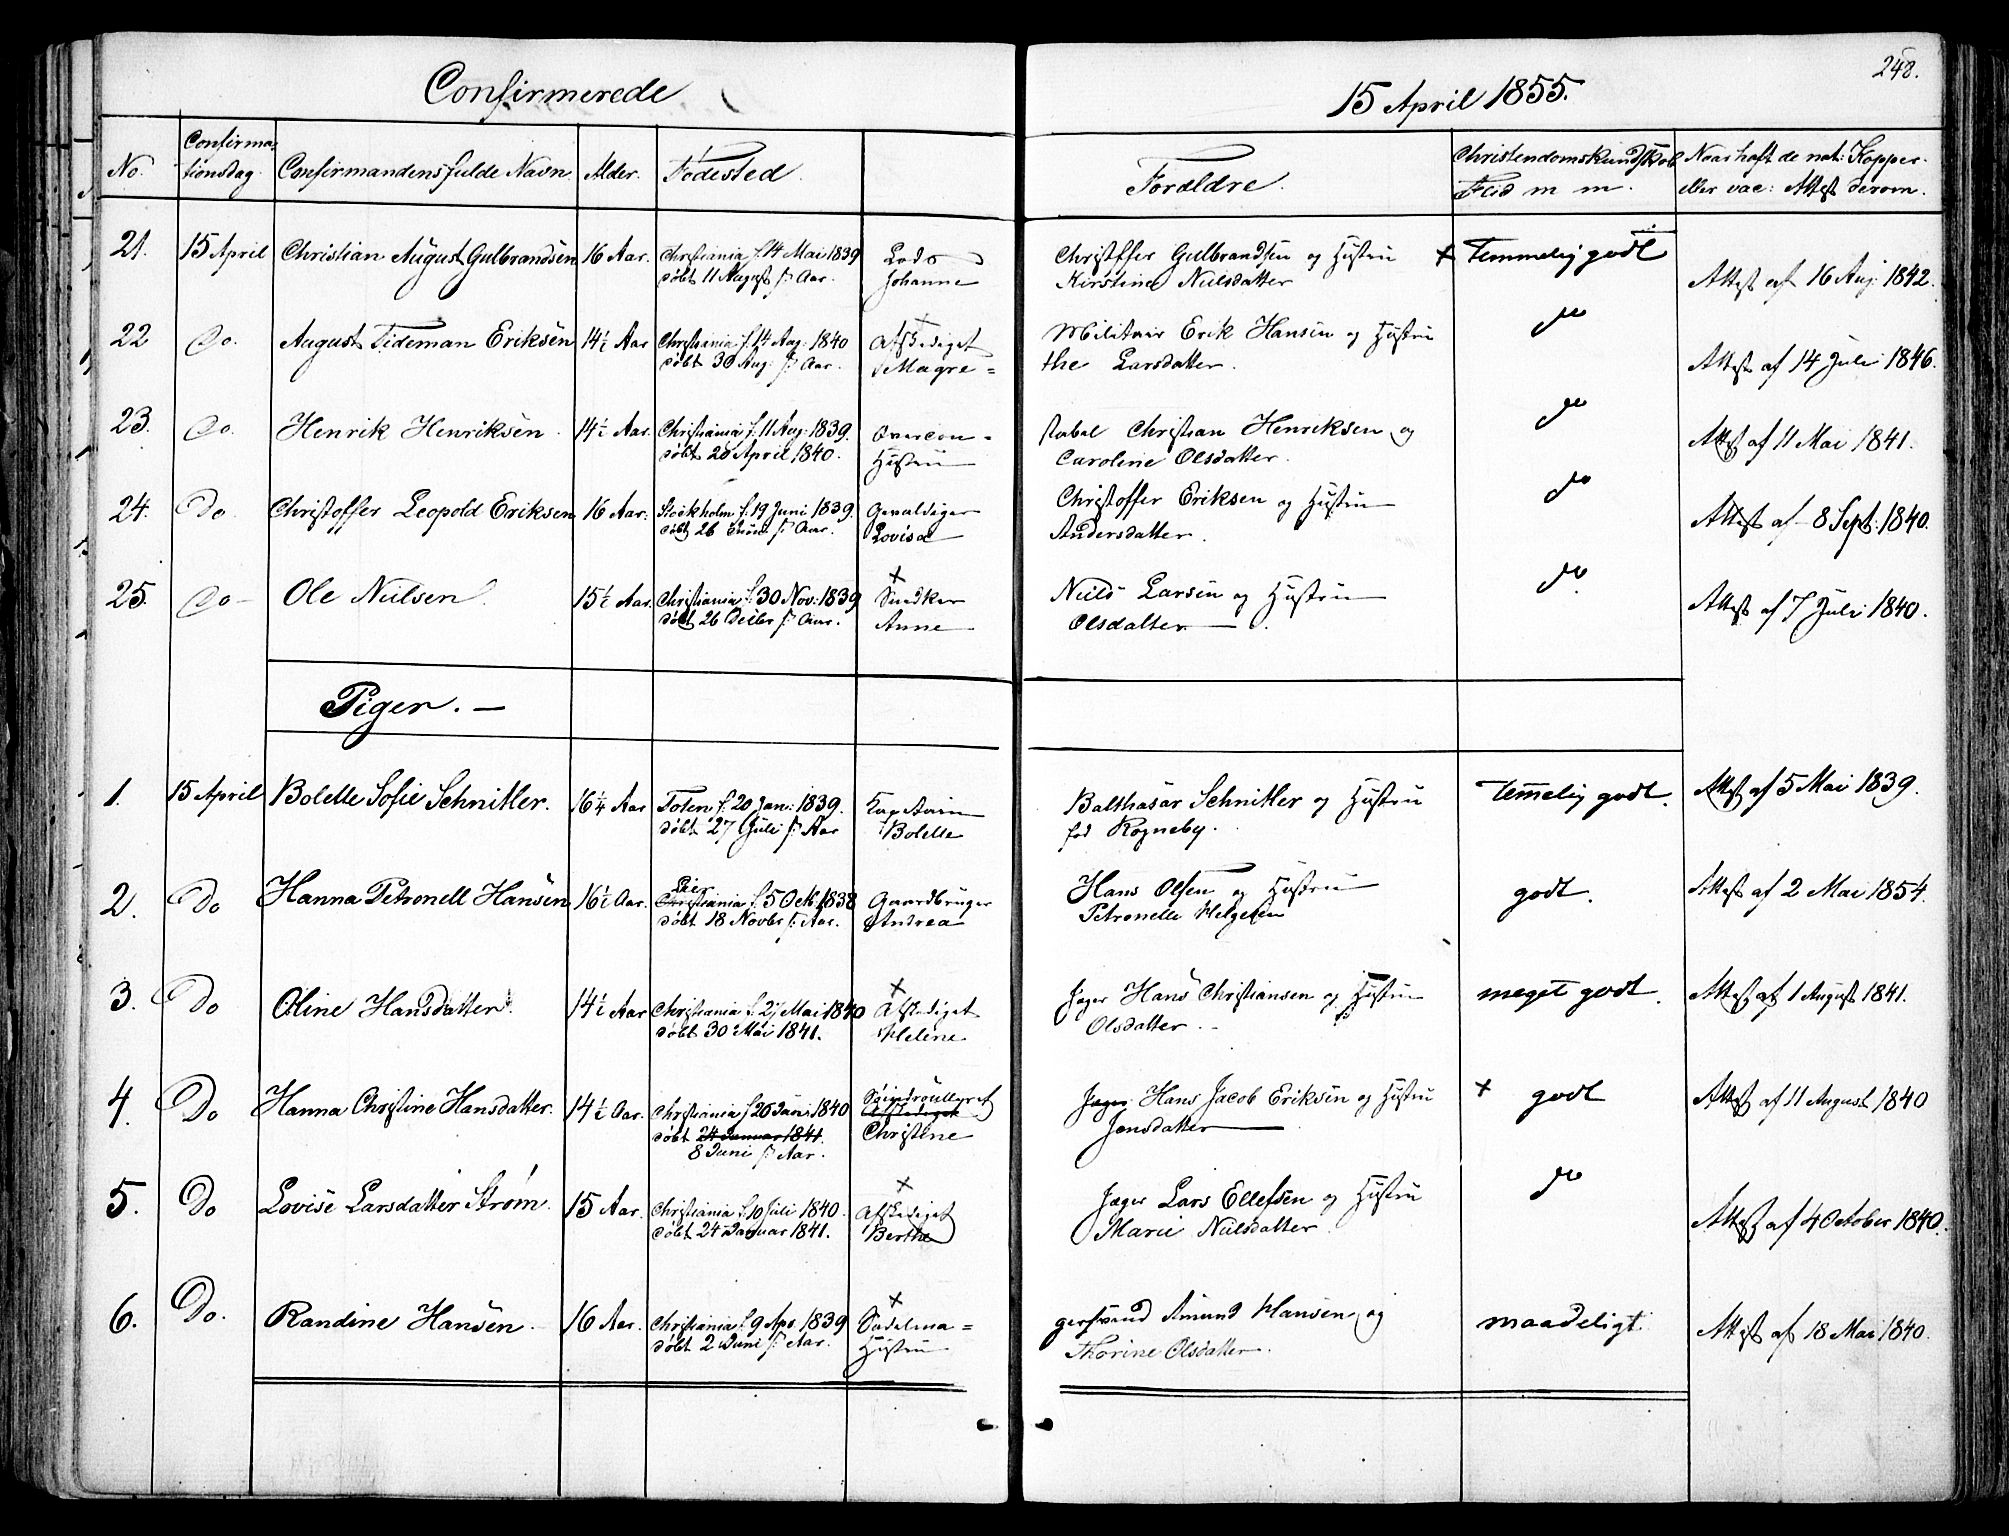 Confirmerede
15 April 1855.
248.
No. Confirma= tionsdag. Confirmandens fulde Navn Alder. Fødested. Forældre. Christendomskundskab Flid m m. Naar haft de nat: Kopper eller vac: Attest derom.
21. 15 April Christian August Gulbrandsen 16 Aar. Christiania f. 14 Mai 1839 Lods Christoffer Gulbrandsen og Hustru + Temmelig godt
døbt 11 August s: Aar. Johanne Kirstine Nielsdatter Attest af 16 Aug: 1842.
22 Do. August Tideman Eriksen 14½ Aar Christiania f. 14 Aug: 1840 Afskediget Militair Erik Hansen og Hustru do
døbt 30 Aug: s: Aar. Magre= the Larsdatter. Attest af 14 Juli 1846.
23. Do. Henrik Henriksen. 14½ Aar. Christiania f. 11 Aug: 1839. Overcon= stabel Christian Henriksen og do
døbt 20 April 1840. Hustru Caroline Olsdatter. Attest af 11 Mai 1841.
24. Do. Christoffer Leopold Eriksen 16 Aar: Stockholm f. 19 Juni 1839. Gevaldiger Christoffer Eriksen og Hustru do
døbt 26 Juni s: Aar. Lovisa Andersdatter. Attest af 8 Sept: 1840.
25. Do Ole Nielsen. 15½ Aar. Christiania f. 30 Nov: 1839 + Snedker Niels Larsen og Hustru do
døbt 26 Decbr s: Aar. Anne Olsdatter. Attest af 7 Juli 1840.
Piger.
1. 15 April Bolette Sofie Schnitler. 16¼ Aar Toten f. 20 Jan: 1839. Kaptain Balthasar Schnitler og Hustru Temmelig godt. Attest af 5 Mai 1839.
døbt 27 Juli s: Aar Bolette fød Rogneby.
2. Do Hanna Petronell Hansen 16½ Aar. Lier Christiania f. 5 Oct. 1838 Gaardbruger Hans Olsen og Hustru godt. Attest af 2 Mai 1854.
døbt 18 Novbr s: Aar. Andrea Petronelle Helgesen
3. Do Oline Hansdatter. 14½ Aar Christiania f. 27 Mai 1840 + Afskediget Jæger Hans Christiansen og Hustru meget godt. Attest af 1 August 1841.
døbt 30 Mai 1841. Helene Olsdatter.
4. Do Hanna Christine Hansdatter. 14½ Aar. Christiania f. 20 Juni 1840 Afskediget Jæger Hans Jacob Eriksen og Hustru + godt Attest af 11 August 1840
døbt 24 Januar 1841. Christine Jensdatter
8 Juni s: Aar.
5. Do Lovise Larsdatter Strøm. 15 Aar. Christiania f. 10 Juli 1840. + Afskediget Jæger Lars Ellefsen og Hustru do
døbt 24 Januar 1841. Berthe Marie Nielsdatter. Attest af 4 October 1840.
6. Do. Randine Hansen. 16 Aar. Christiania f. 9 Apr. 1839 + Sadelma= gersvend Amund Hansen og maadeligt. Attest af 18 Mai 1840.
døbt 2 Juni s: Aar. Hustru Thorine Olsdatter.